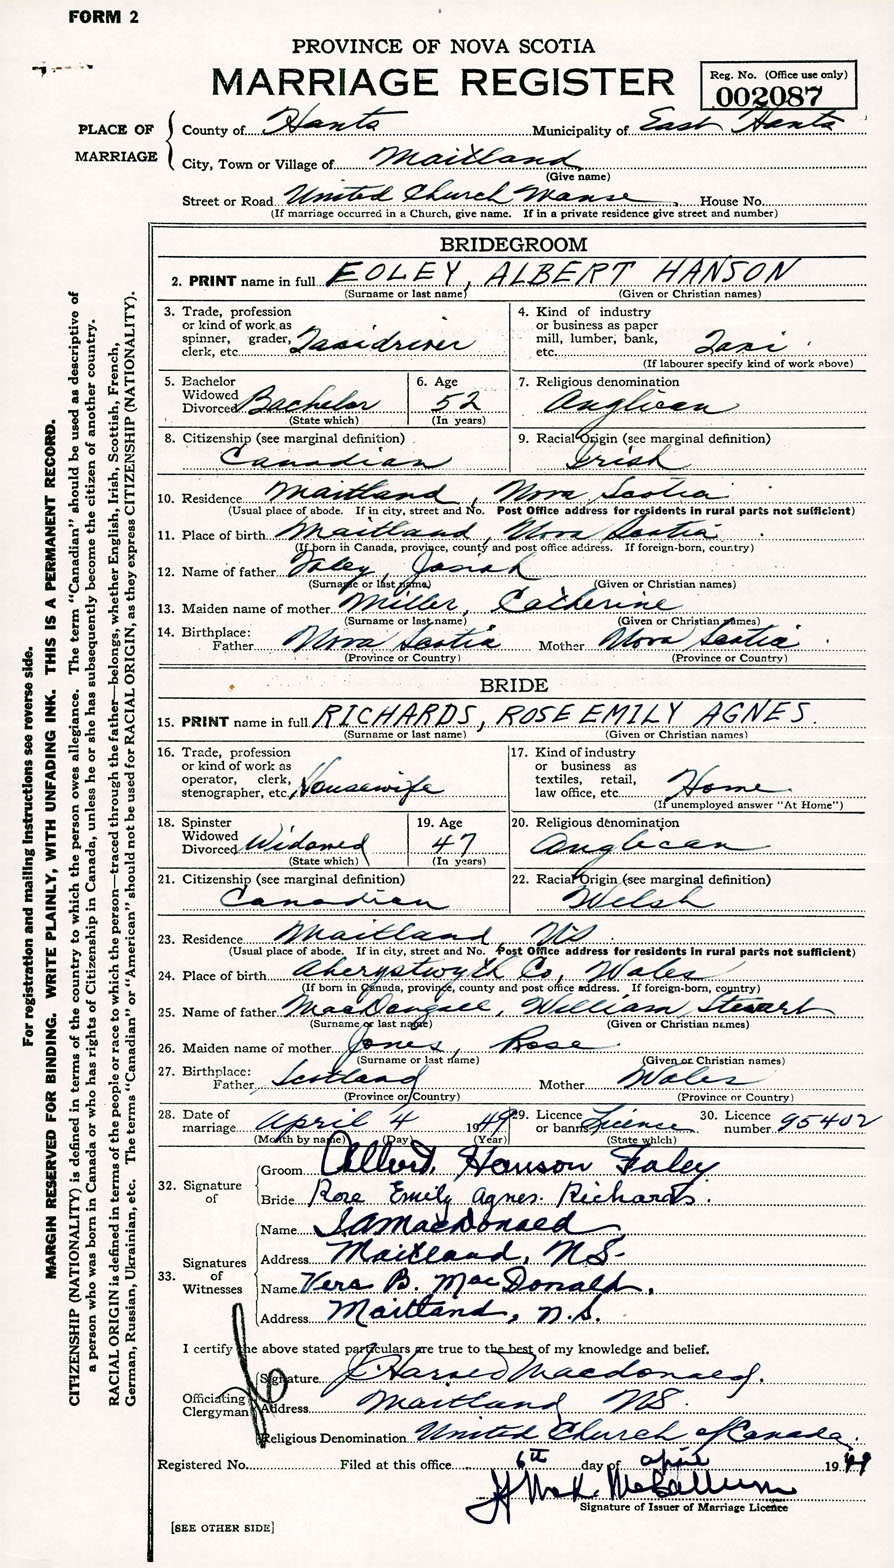 FORM 2
PROVINCE OF NOVA SCOTIA
MARRIAGE REGISTER
Reg. No. (Office use only)
002087
PLACE OF MARRIAGE
County of Hants Municipality of East Hants
City, Town or Village of Maitland
(Give name)
Street or Road United Church Manse House No.
(If marriage occurred in a Church, give name. If in a private residence give street and number)
BRIDEGROOM
2. PRINT name in full FOLEY, ALBERT HANSON
(Surname or last name) (Given or Christian names)
3. Trade, profession or kind of work as spinner, grader, clerk, etc. Taxidriver
4. Kind of industry or business as paper mill, lumber, bank, etc. Taxi
(If labourer specify kind of work above)
5. Bachelor Widowed Divorced Bachelor
(State which)
6. Age 52
(In years)
7. Religious denomination Anglican
8. Citizenship (see marginal definition) Canadian
9. Racial Origin (see marginal definition) Irish
10. Residence Maitland, Nova Scotia
(Usual place of abode. If in city, street and No. Post Office address for residents in rural parts not sufficient)
11. Place of birth Maitland, Nova Scotia
(If born in Canada, province, county and post office address. If foreign-born, country)
12. Name of father Foley, Josiah
(Surname or last name) (Given or Christian names)
13. Maiden name of mother Miller, Catherine
(Surname or last name) (Given or Christian names)
14. Birthplace: Father Nova Scotia Mother Nova Scotia
(Province or Country) (Province or Country)
BRIDE
15. PRINT name in full RICHARDS, ROSE EMILY AGNES.
(Surname or last name) (Given or Christian names)
16. Trade, profession or kind of work as operator, clerk, stenographer, etc. Housewife
17. Kind of industry or business as textiles, retail, law office, etc. Home
(If unemployed answer "At Home")
18. Spinster Widowed Divorced Widowed
(State which)
19. Age 47
(In years)
20. Religious denomination Anglican
21. Citizenship (see marginal definition) Canadian
22. Racial Origin (see marginal definition) Welsh
23. Residence Maitland NS
(Usual place of abode. If in city, street and No. Post Office address for residents in rural parts not sufficient)
24. Place of birth Aberystwyth Co, Wales
(If born in Canada, province, county and post office address. If foreign-born, country)
25. Name of father MacDougall, William Stewart
(Surname or last name) (Given or Christian names)
26. Maiden name of mother Jones, Rose
(Surname or last name) (Given or Christian names)
27. Birthplace: Father Scotland Mother Wales
(Province or Country) (Province or Country)
28. Date of marriage April 4 1949
(Month by name) (Day) (Year)
29. Licence or banns Licence
(State which)
30. Licence number 95402
32. Signature of
Groom Albert Hanson Foley
Bride Rose Emily Agnes Richards.
33. Signatures of Witnesses
Name MacDonald
Address Maitland, NS-
Name Vera B. MacDonald.
Address Maitland, N.S.
I certify the above stated particulars are true to the best of my knowledge and belief.
Officiating Clergyman
Signature Macdonald.
Address Maitland NS.
Religious Denomination United Church of Canada.
Registered No. Filed at this office 6th day of April 1949
McCallum
Signature of Issuer of Marriage Licence
[SEE OTHER SIDE]
For registration and mailing instructions see reverse side.
MARGIN RESERVED FOR BINDING. WRITE PLAINLY, WITH UNFADING INK. THIS IS A PERMANENT RECORD.
CITIZENSHIP (NATIONALITY) is defined in terms of the country to which the person owes allegiance. The term "Canadian" should be used as descriptive of
a person who was born in Canada or who has rights of Citizenship in Canada, unless he or she has subsequently become the citizen of another country.
RACIAL ORIGIN is defined in terms of the people or race to which the person—traced through the father—belongs, whether English, Irish, Scottish, French,
German, Russian, Ukrainian, etc. The terms "Canadian" or "American" should not be used for RACIAL ORIGIN, as they express CITIZENSHIP (NATIONALITY).